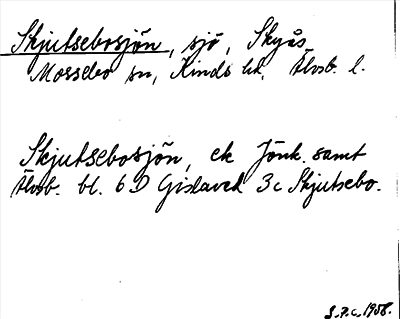 Skjutsebosjön, sjö, Skyås
Mossebo sn, Kinds hd, Älvsb. l.
Skjutsebosjön, ek Jönk. samt
Älvsb. bl. 6D Gislaved 3c Skjutsebo.
1958.